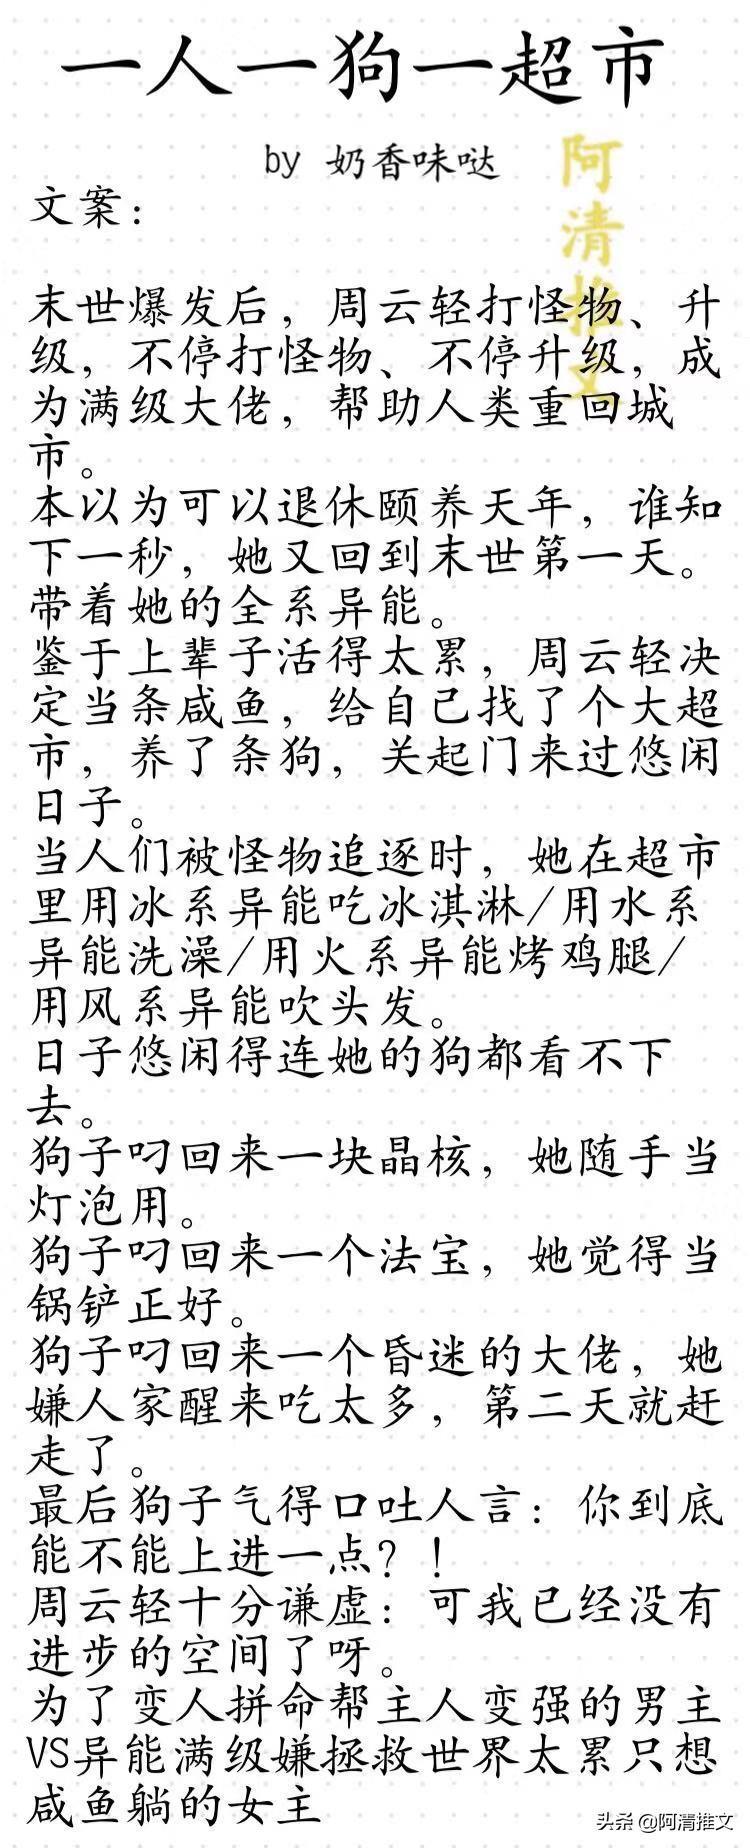 一人一狗一超市
by 奶香味哒
阿清推文
文案：
末世爆发后，周云轻打怪物、升
级，不停打怪物、不停升级，成
为满级大佬，帮助人类重回城
市。
本以为可以退休颐养天年，谁知
下一秒，她又回到末世第一天。
带着她的全系异能。
鉴于上辈子活得太累，周云轻决
定当条咸鱼，给自己找了个大超
市，养了条狗，关起门来过悠闲
日子。
当人们被怪物追逐时，她在超市
里用冰系异能吃冰淇淋/用水系
异能洗澡/用火系异能烤鸡腿/
用风系异能吹头发。
日子悠闲得连她的狗都看不下
去。
狗子叼回来一块晶核，她随手当
灯泡用。
狗子叼回来一个法宝，她觉得当
锅铲正好。
狗子叼回来一个昏迷的大佬，她
嫌人家醒来吃太多，第二天就赶
走了。
最后狗子气得口吐人言：你到底
能不能上进一点？！
周云轻十分谦虚：可我已经没有
进步的空间了呀。
为了变人拼命帮主人变强的男主
VS异能满级嫌拯救世界太累只想
咸鱼躺的女主
头条 @阿清推文